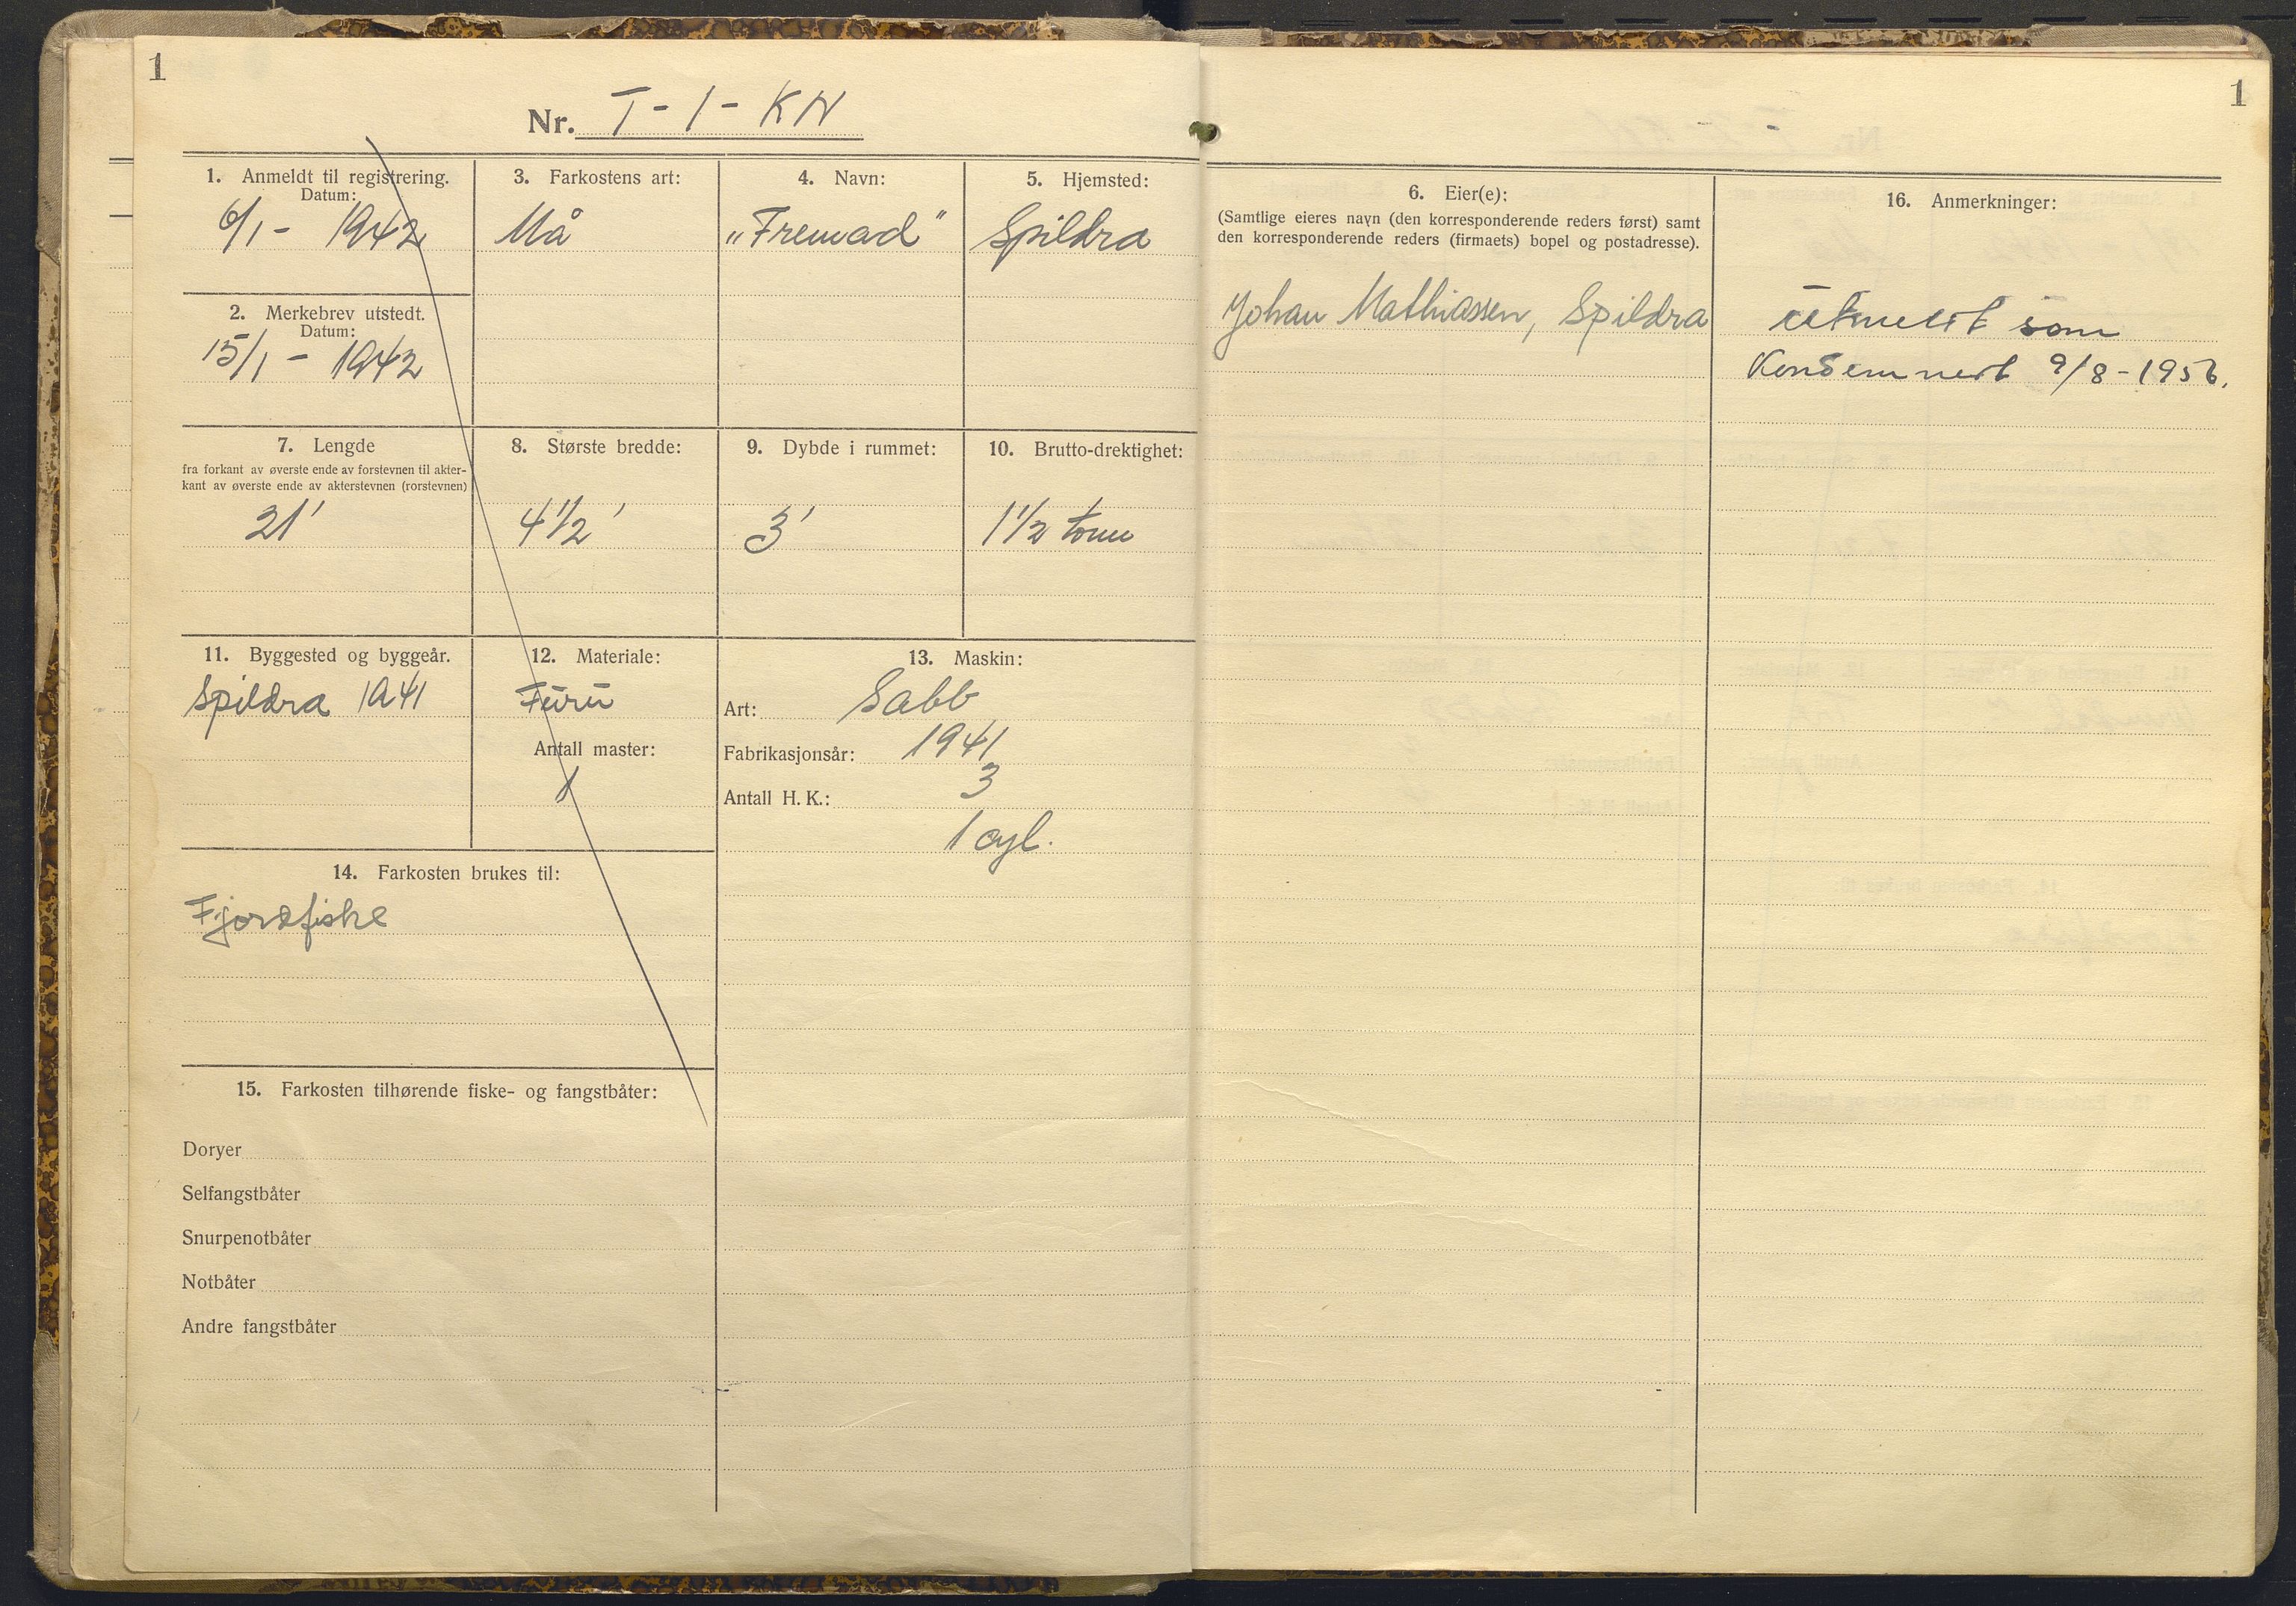 1
Nr. T-1-KN
1. Anmeldt til registrering.
Datum:
6/1 - 1942
2. Merkebrev utstedt.
Datum:
15/1 - 1942
3. Farkostens art:
Må
4. Navn:
„Fremad"
5. Hjemsted:
Spildra
7. Lengde
fra forkant av øverste ende av forstevnen til akter-
kant av øverste ende av akterstevnen (rorstevnen)
21'
8. Største bredde:
4 1/2'
9. Dybde i rummet:
3'
10. Brutto-drektighet:
1 1/2 tonn
11. Byggested og byggeår.
Spildra 1941
12. Materiale:
Furu
Antall master:
1
13. Maskin:
Art: Sabb
Fabrikasjonsår: 1941
Antall H. K.: 3
1 cyl.
14. Farkosten brukes til:
Fjordfiske
15. Farkosten tilhørende fiske- og fangstbåter:
Doryer
Selfangstbåter
Snurpenotbåter
Notbåter
Andre fangstbåter
1
6. Eier(e):
(Samtlige eieres navn (den korresponderende reders først) samt
den korresponderende reders (firmaets) bopel og postadresse).
Johan Mathiassen, Spildra
16. Anmerkninger:
utmeldt som
Kondemnert 9/8-1956.